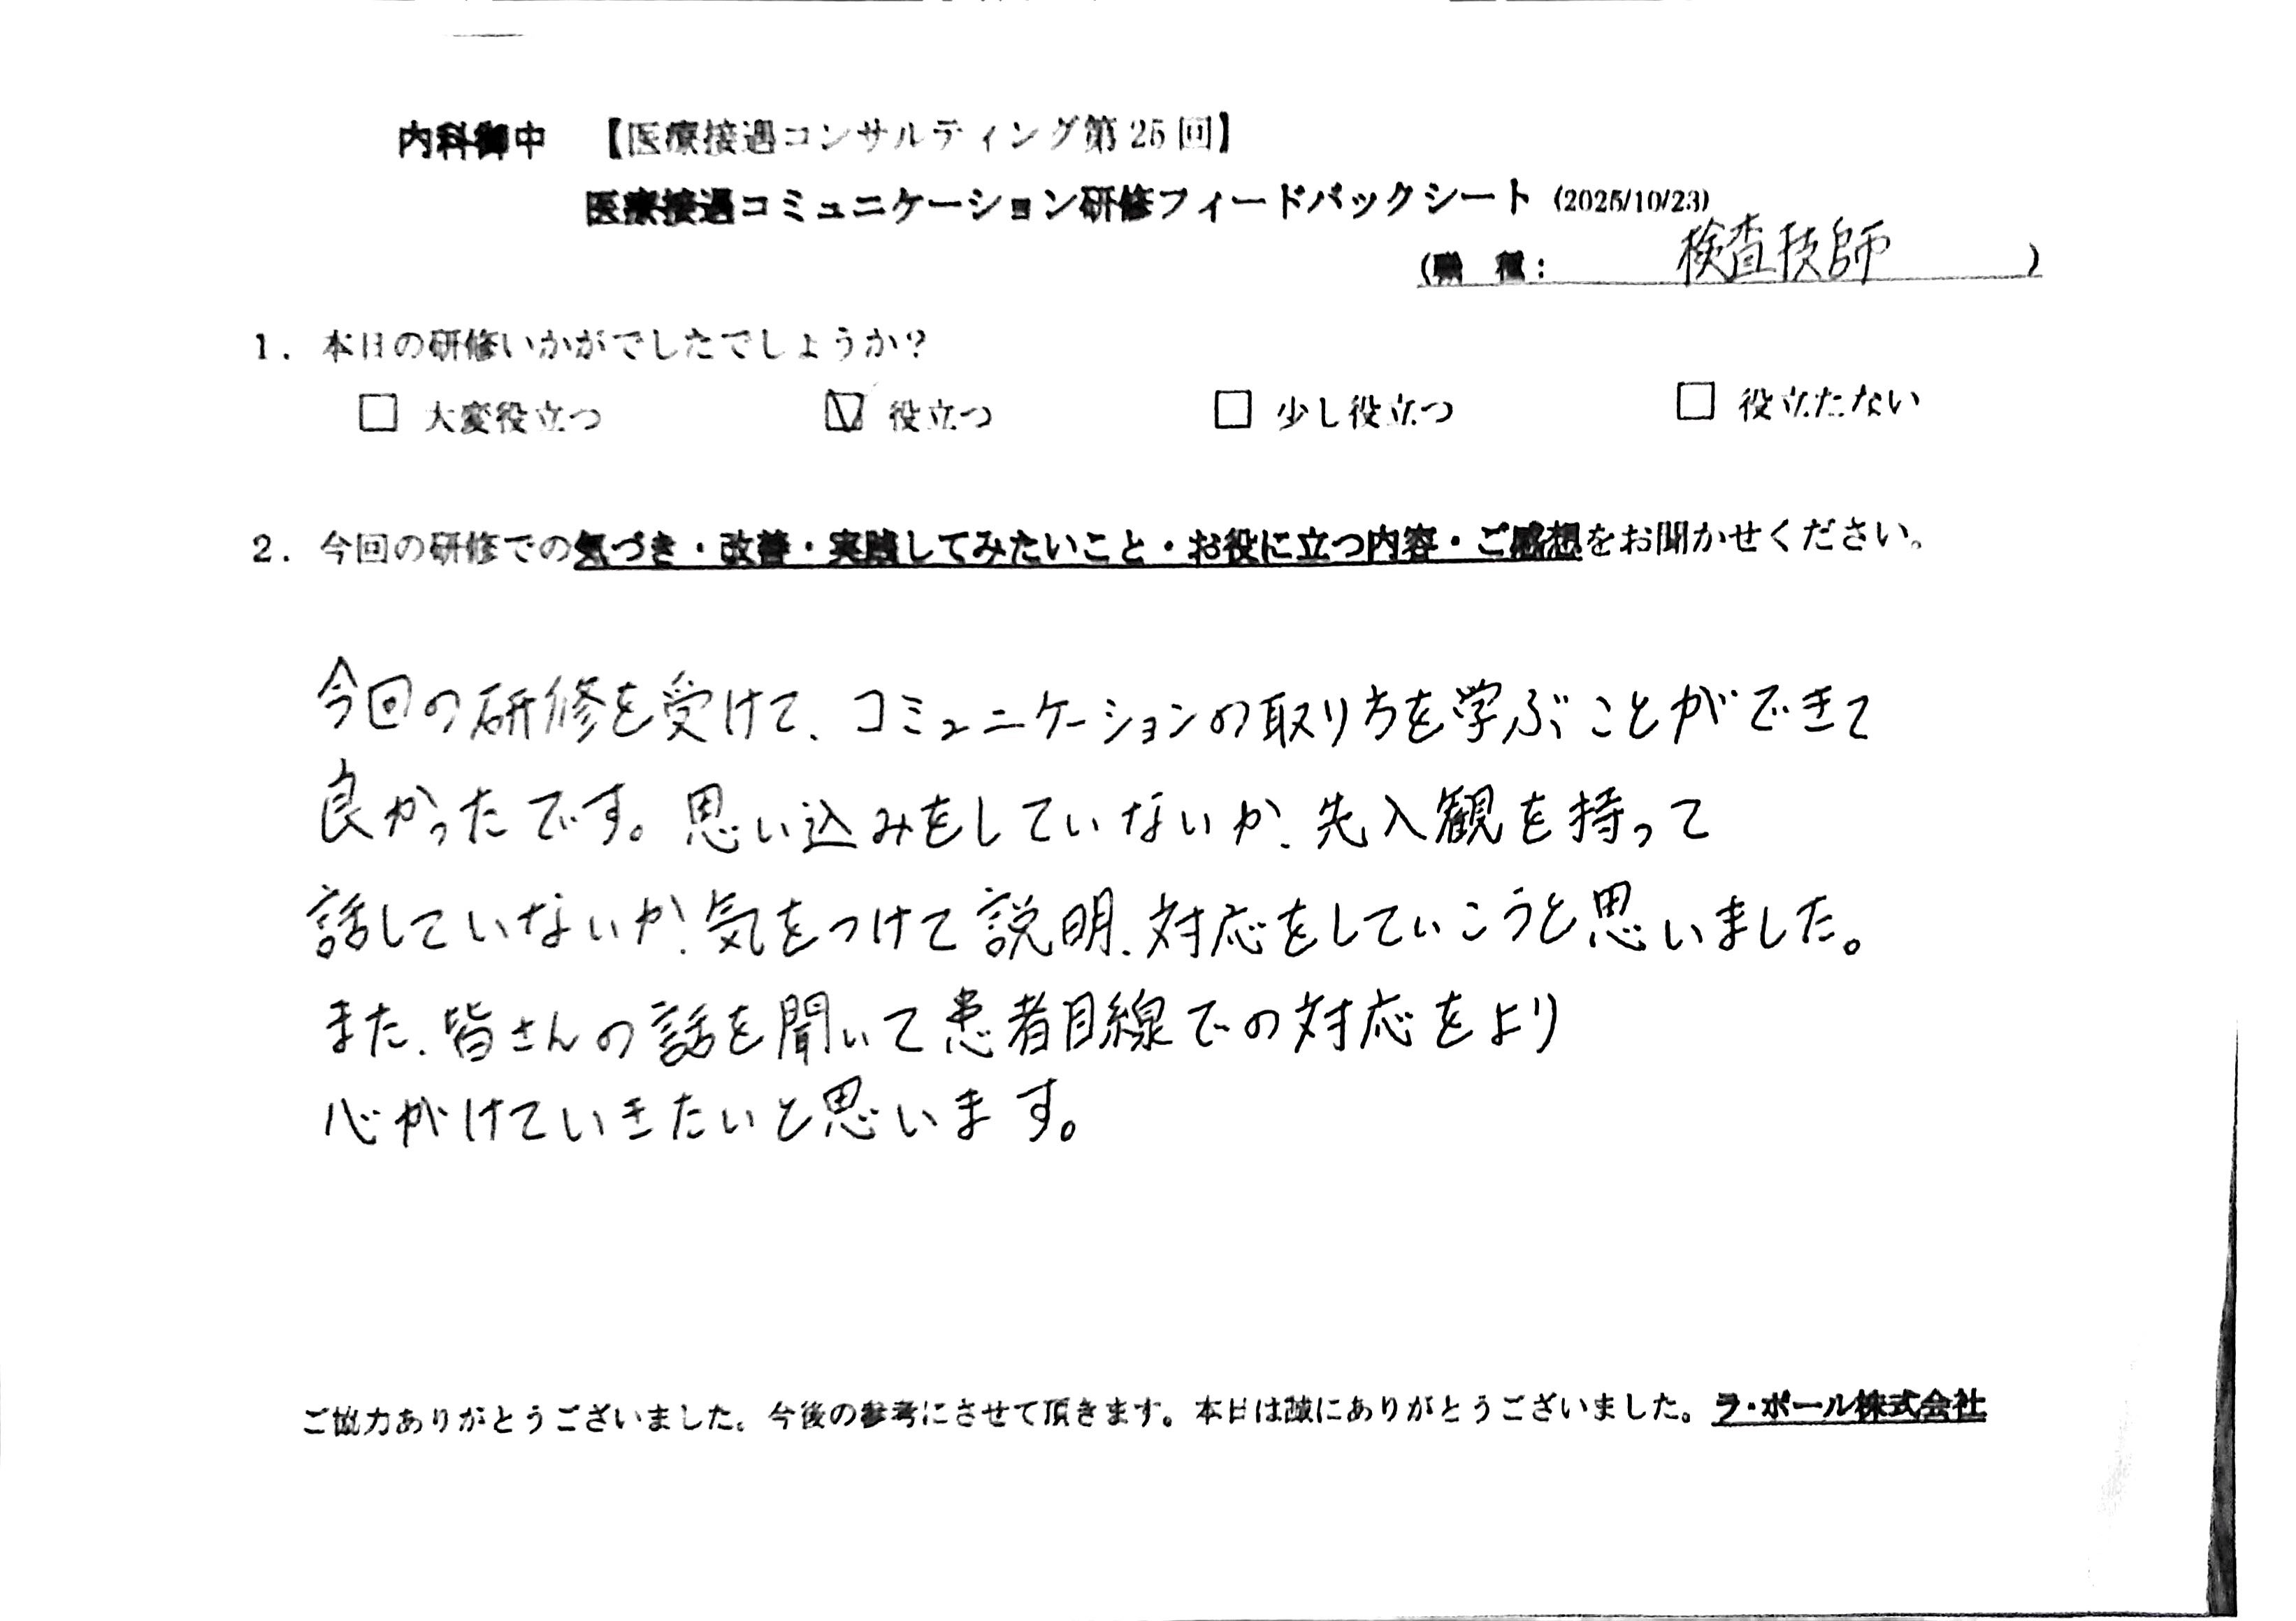 内科御中 【医療接遇コンサルティング第25回】
医療接遇コミュニケーション研修フィードバックシート (2025/10/23)
(職 種: 検査技師 )
1. 本日の研修いかがでしたでしょうか?
□ 大変役立つ ☑ 役立つ □ 少し役立つ □ 役立たない
2. 今回の研修での気づき・改善・実践してみたいこと・お役に立つ内容・ご感想をお聞かせください。
今回の研修を受けて、コミュニケーションの取り方を学ぶことができて
良かったです。思い込みをしていないか、先入観を持って
話していないか、気をつけて説明、対応をしていこうと思いました。
また、皆さんの話を聞いて患者目線での対応をより
心がけていきたいと思います。
ご協力ありがとうございました。今後の参考にさせて頂きます。本日は誠にありがとうございました。ラ・ポール株式会社